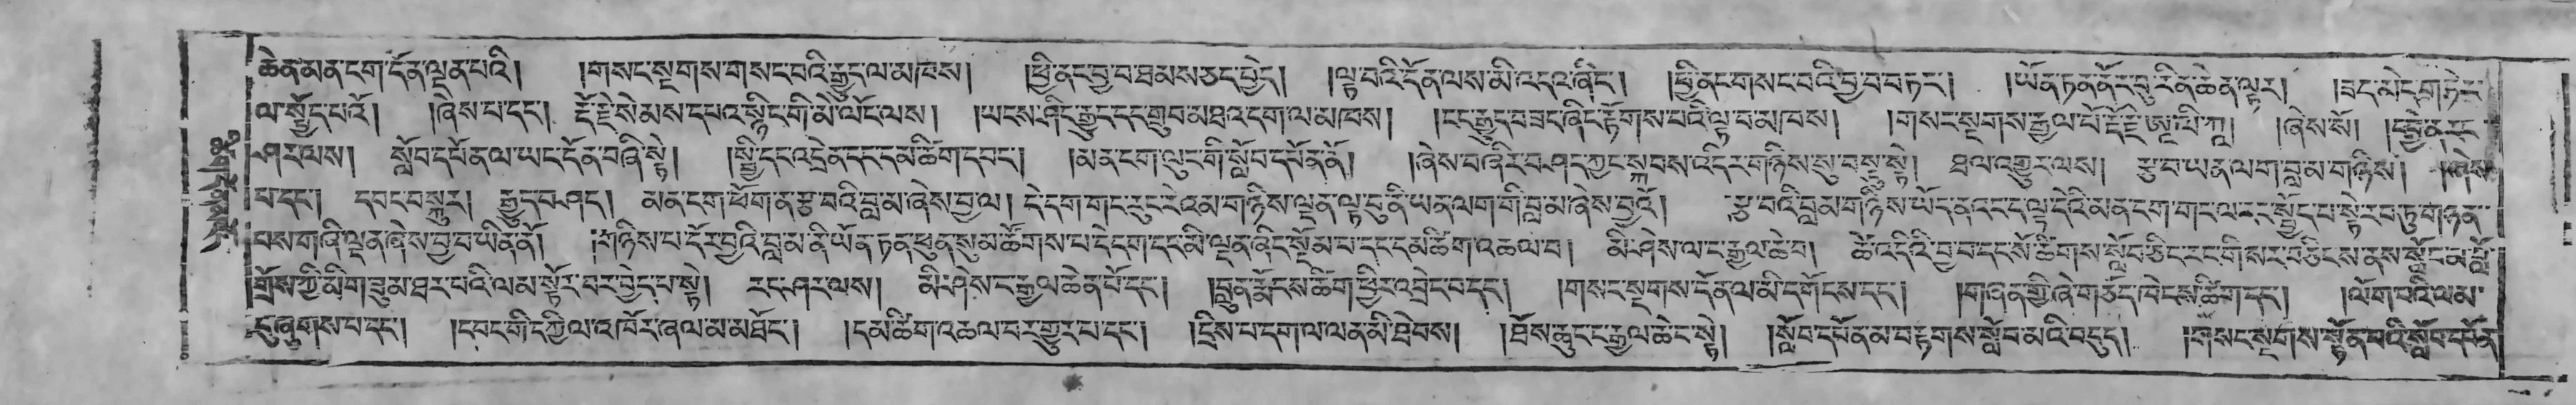 ཆེན་མན་ངག་དོན་ལྡན་པའི། །གསང་སྔགས་གསང་བའི་རྒྱུད་ལ་མཁས། །ཕྱི་ནང་བྱ་བ་ཐམས་ཅད་བྱེད། །ལྟ་བའི་དོན་ལས་མི་འདའ་ཞིང་། །ཕྱི་ནང་གསང་བའི་བྱ་བ་བཏང་། །ཡོན་ཏན་ནོར་བུ་རིན་ཆེན་ལྟར། །ཟད་མེད་གཏེར་
ལ་སྤྱོད་པའོ། །ཞེས་པ་དང་། རྡོ་རྗེ་སེམས་དཔའ་སྙིང་གི་མེ་ལོང་ལས། །ཡངས་ཤིང་རྒྱུད་དང་གྲུབ་མཐའ་དག་ལ་མཁས། །ངང་རྒྱུད་བཟང་ཞིང་རྟོགས་པའི་ལྟ་བ་མཁས། །གསང་སྔགས་རྒྱལ་པོ་རྡོ་རྗེ་ཨ་ལི་ཀཱ། །ཞེས་སོ། །དབྱེ་ན་རང་
ཤར་ལས། སློབ་དཔོན་ལ་ཡང་དོན་བཞི་སྟེ། །སྤྱི་དང་འདྲེན་དང་དམ་ཚིག་དབང་། །མན་ངག་ལུང་གི་སློབ་དཔོན་ནོ། །ཞེས་བཞིར་བཤད་ཀྱང་སྐབས་འདིར་གཉིས་སུ་བསྡུ་སྟེ། ཐལ་འགྱུར་ལས། རྩ་བ་ཡན་ལག་བླ་མ་གཉིས། །ཞེས་
པ་དང་། དབང་བསྐུར། རྒྱུད་བཤད། མན་ངག་ཕོག་ན་རྩ་བའི་བླ་མ་ཞེས་བྱ་ལ། དེ་དག་གང་རུང་རེ་འམ་གཉིས་ལྡན་ལྟ་བུ་ནི་ཡན་ལག་གི་བླ་མ་ཞེས་བྱའོ། རྩ་བའི་བླ་མ་གཉིས་ཡོད་ན་འང་ད་ལྟ་དེའི་མན་ངག་གང་ལ་རང་སྤྱོད་པ་སྟེར་བ་
བས་གཞི་ལྡན་ཞེས་བྱ་བ་ཡིན་ནོ། །གཉིས་པ་དོར་བྱའི་བླ་མ་ནི་ཡོན་ཏན་ཕུན་སུམ་ཚོགས་པ་དེ་དག་དང་མི་ལྡན་ཞིང་སྡོམ་པ་དང་དམ་ཚིག་འཆལ་བ། མི་ཤེས་ལ་ང་རྒྱལ་ཆེ་བ། ཚེ་འདིའི་བྱ་བ་དང་
གྲོས་ཀྱི་མིག་ཟུམ་ཐར་པའི་ལམ་སྟོར་བར་བྱེད་པ་སྟེ། རང་ཤར་ལས། མི་ཤེས་ང་རྒྱལ་ཆེན་པོ་དང་། །བླུན་རྨོངས་ཚིག་ཕྱིར་འབྲེང་བ་དང་། །གསང་སྔགས་དོན་ལ་མི་དགོངས་དང་། །གཞན་གྱི་ཞེ་གཅོད་ཁེངས་ཚིག་དང་། །ལོག་པའི་ལམ་
དུ་ཞུགས་པ་དང་། །དབང་གི་དཀྱིལ་འཁོར་ཞལ་མ་མཐོང་། །དམ་ཚིག་འཆལ་བར་གྱུར་པ་དང་། །དྲིས་པ་དག་ལ་ལན་མི་ཐེབས། །ཐོས་ཆུང་ང་རྒྱལ་ཆེ་ང་སྟེ། །སློབ་དཔོན་མ་བརྟགས་སློབ་མའི་བདུད། །གསང་སྔགས་སྟོན་པའི་སློབ་དཔོན་